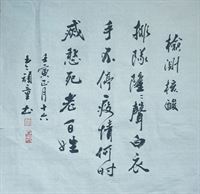 檢測核酸
排隊隆隆聲白衣
手不停疫情何时
滅愁死老百姓
壬寅正月十六